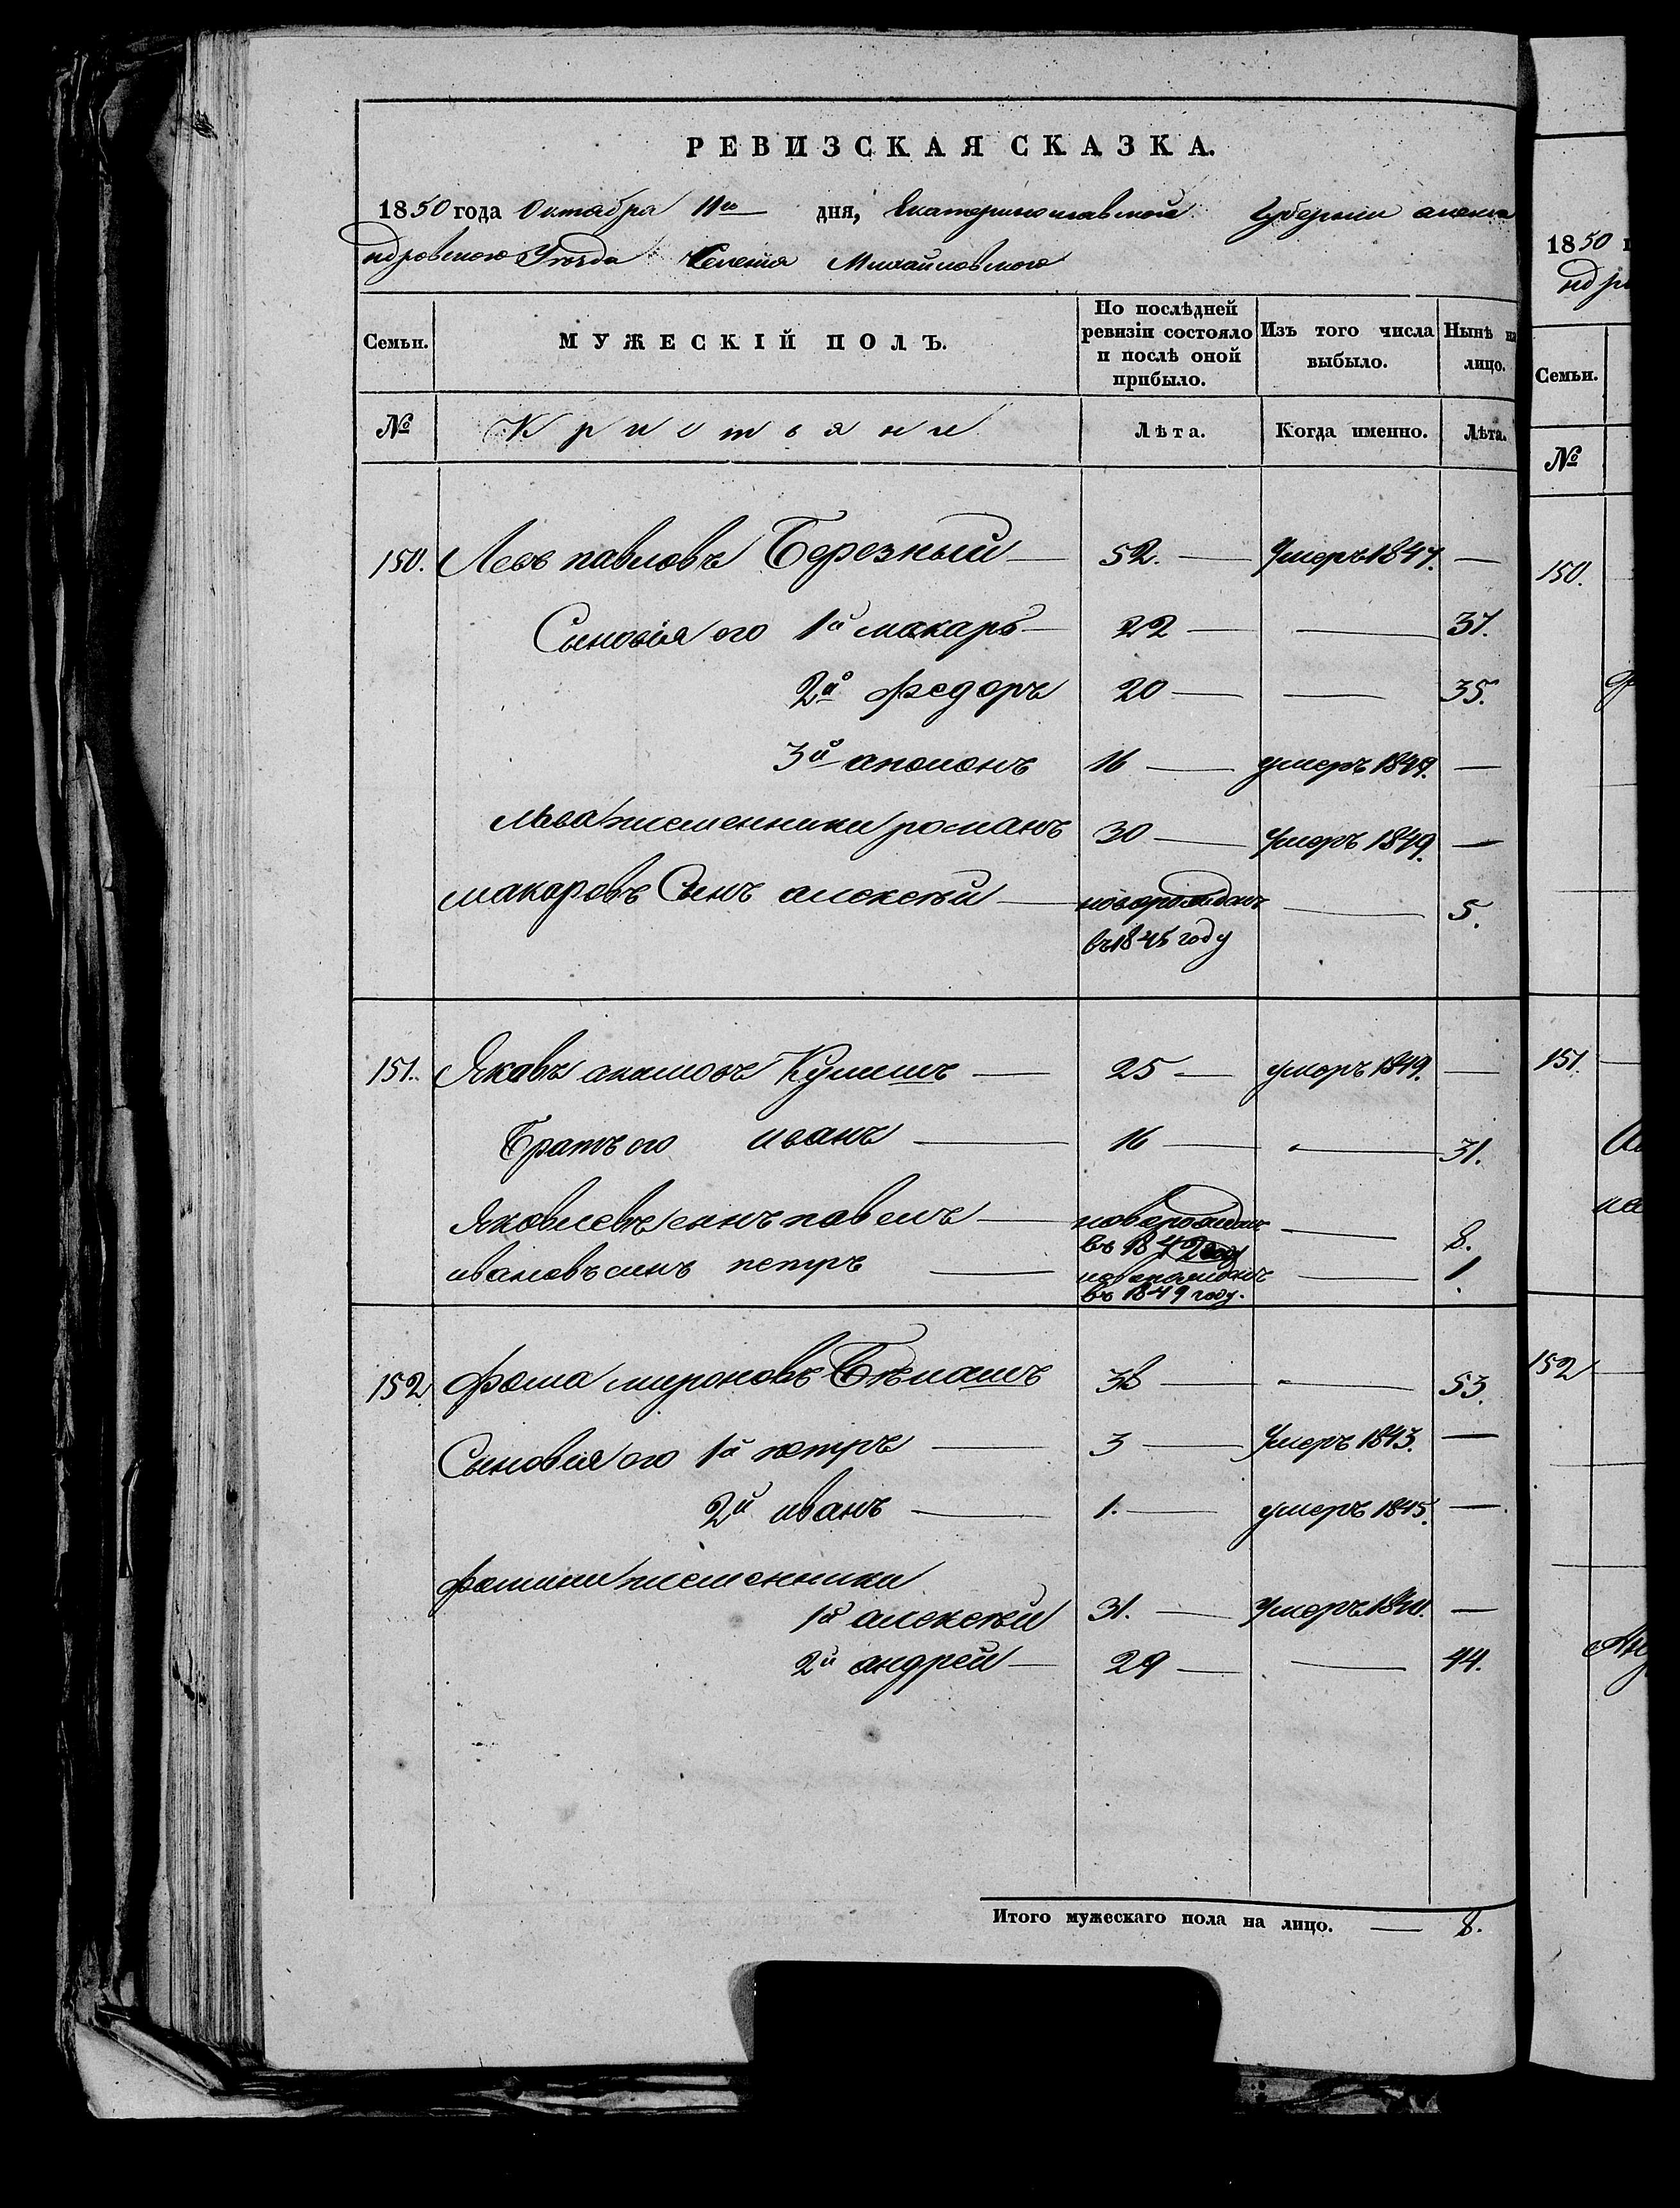 РЕВИЗСКАЯ СКАЗКА.
1850 года Октября 11го дня, Екатеринославской Губернии алекса
ндровского Уезда Селения Михайловского
Семьи. МУЖЕСКІЙ ПОЛЪ. По послѣдней ревизіи состояло и послѣ оной прибыло. Изъ того числа выбыло. Нынѣ на лицо.
№ Кристьяни Лѣта. Когда именно. Лѣта.
150. Левъ павловъ Березный — 52. — Умеръ 1847. —
Синовія его 1й макаръ — 22 — — 37.
2й федоръ 20 — — 35.
3й аполонъ 16 — умеръ 1849. —
Льва племенники романъ 30 — Умеръ 1849. —
макаровъ Сынъ алексѣй — новорожданъ — 5.
въ 1845 году
151. Яковъ Кулишъ — 25 — умеръ 1849. —
Братъ его иванъ — 16 — — 31.
Яковлевъ синъ павелъ — новорожданъ — 8.
въ 1842 году
ивановъ синъ петръ — новорожданъ — 1.
въ 1849 году.
152. фома мироновъ 38 — — 53.
Сыновія его 1й петръ — 3 — Умеръ 1843. —
2й иванъ — 1. — умеръ 1845. —
фомини племенники
1й алексѣй 31. — Умеръ —
2й андрей — 29 — — 44.
Итого мужескаго пола на лицо. — 8.
1850
ндро
Семьи.
№
150.
151
152